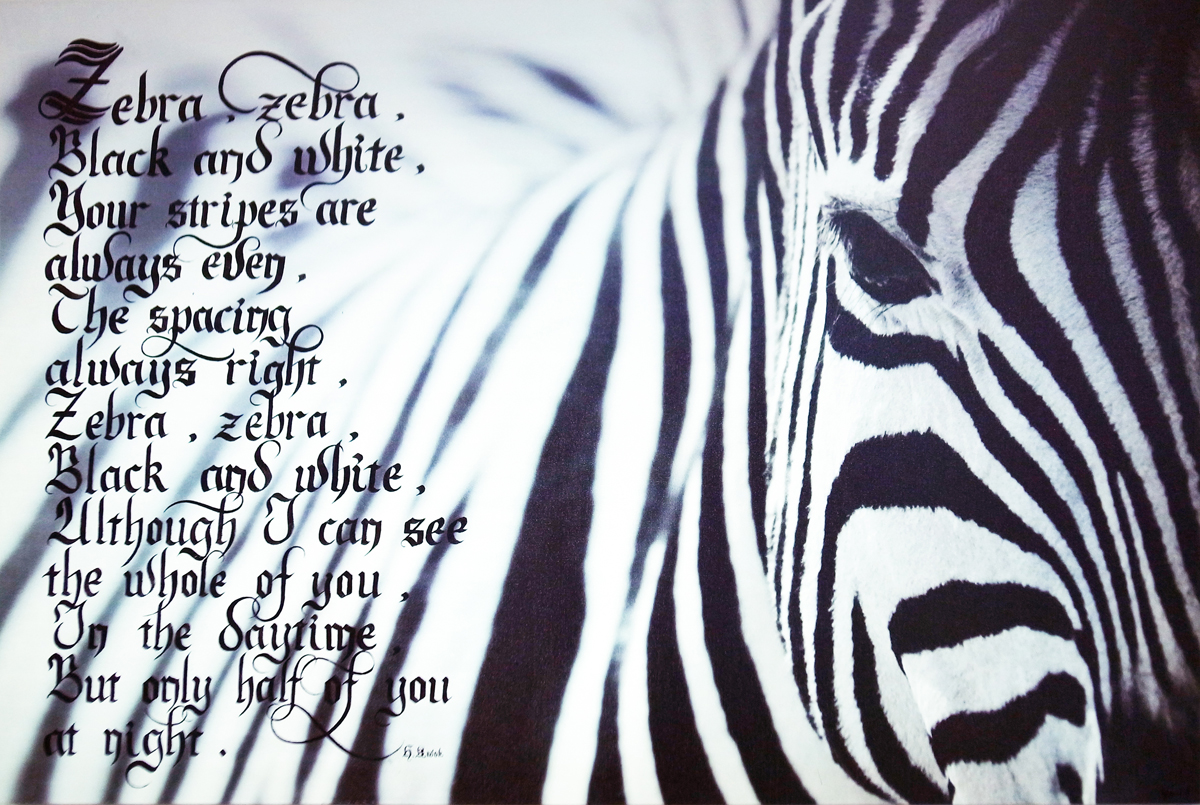 Zebra , zebra ,
Black and white ,
Your stripes are
always even ,
The spacing
always right ,
Zebra , zebra ,
Black and white ,
Although I can see
the whole of you ,
In the daytime ,
But only half of you
at night .